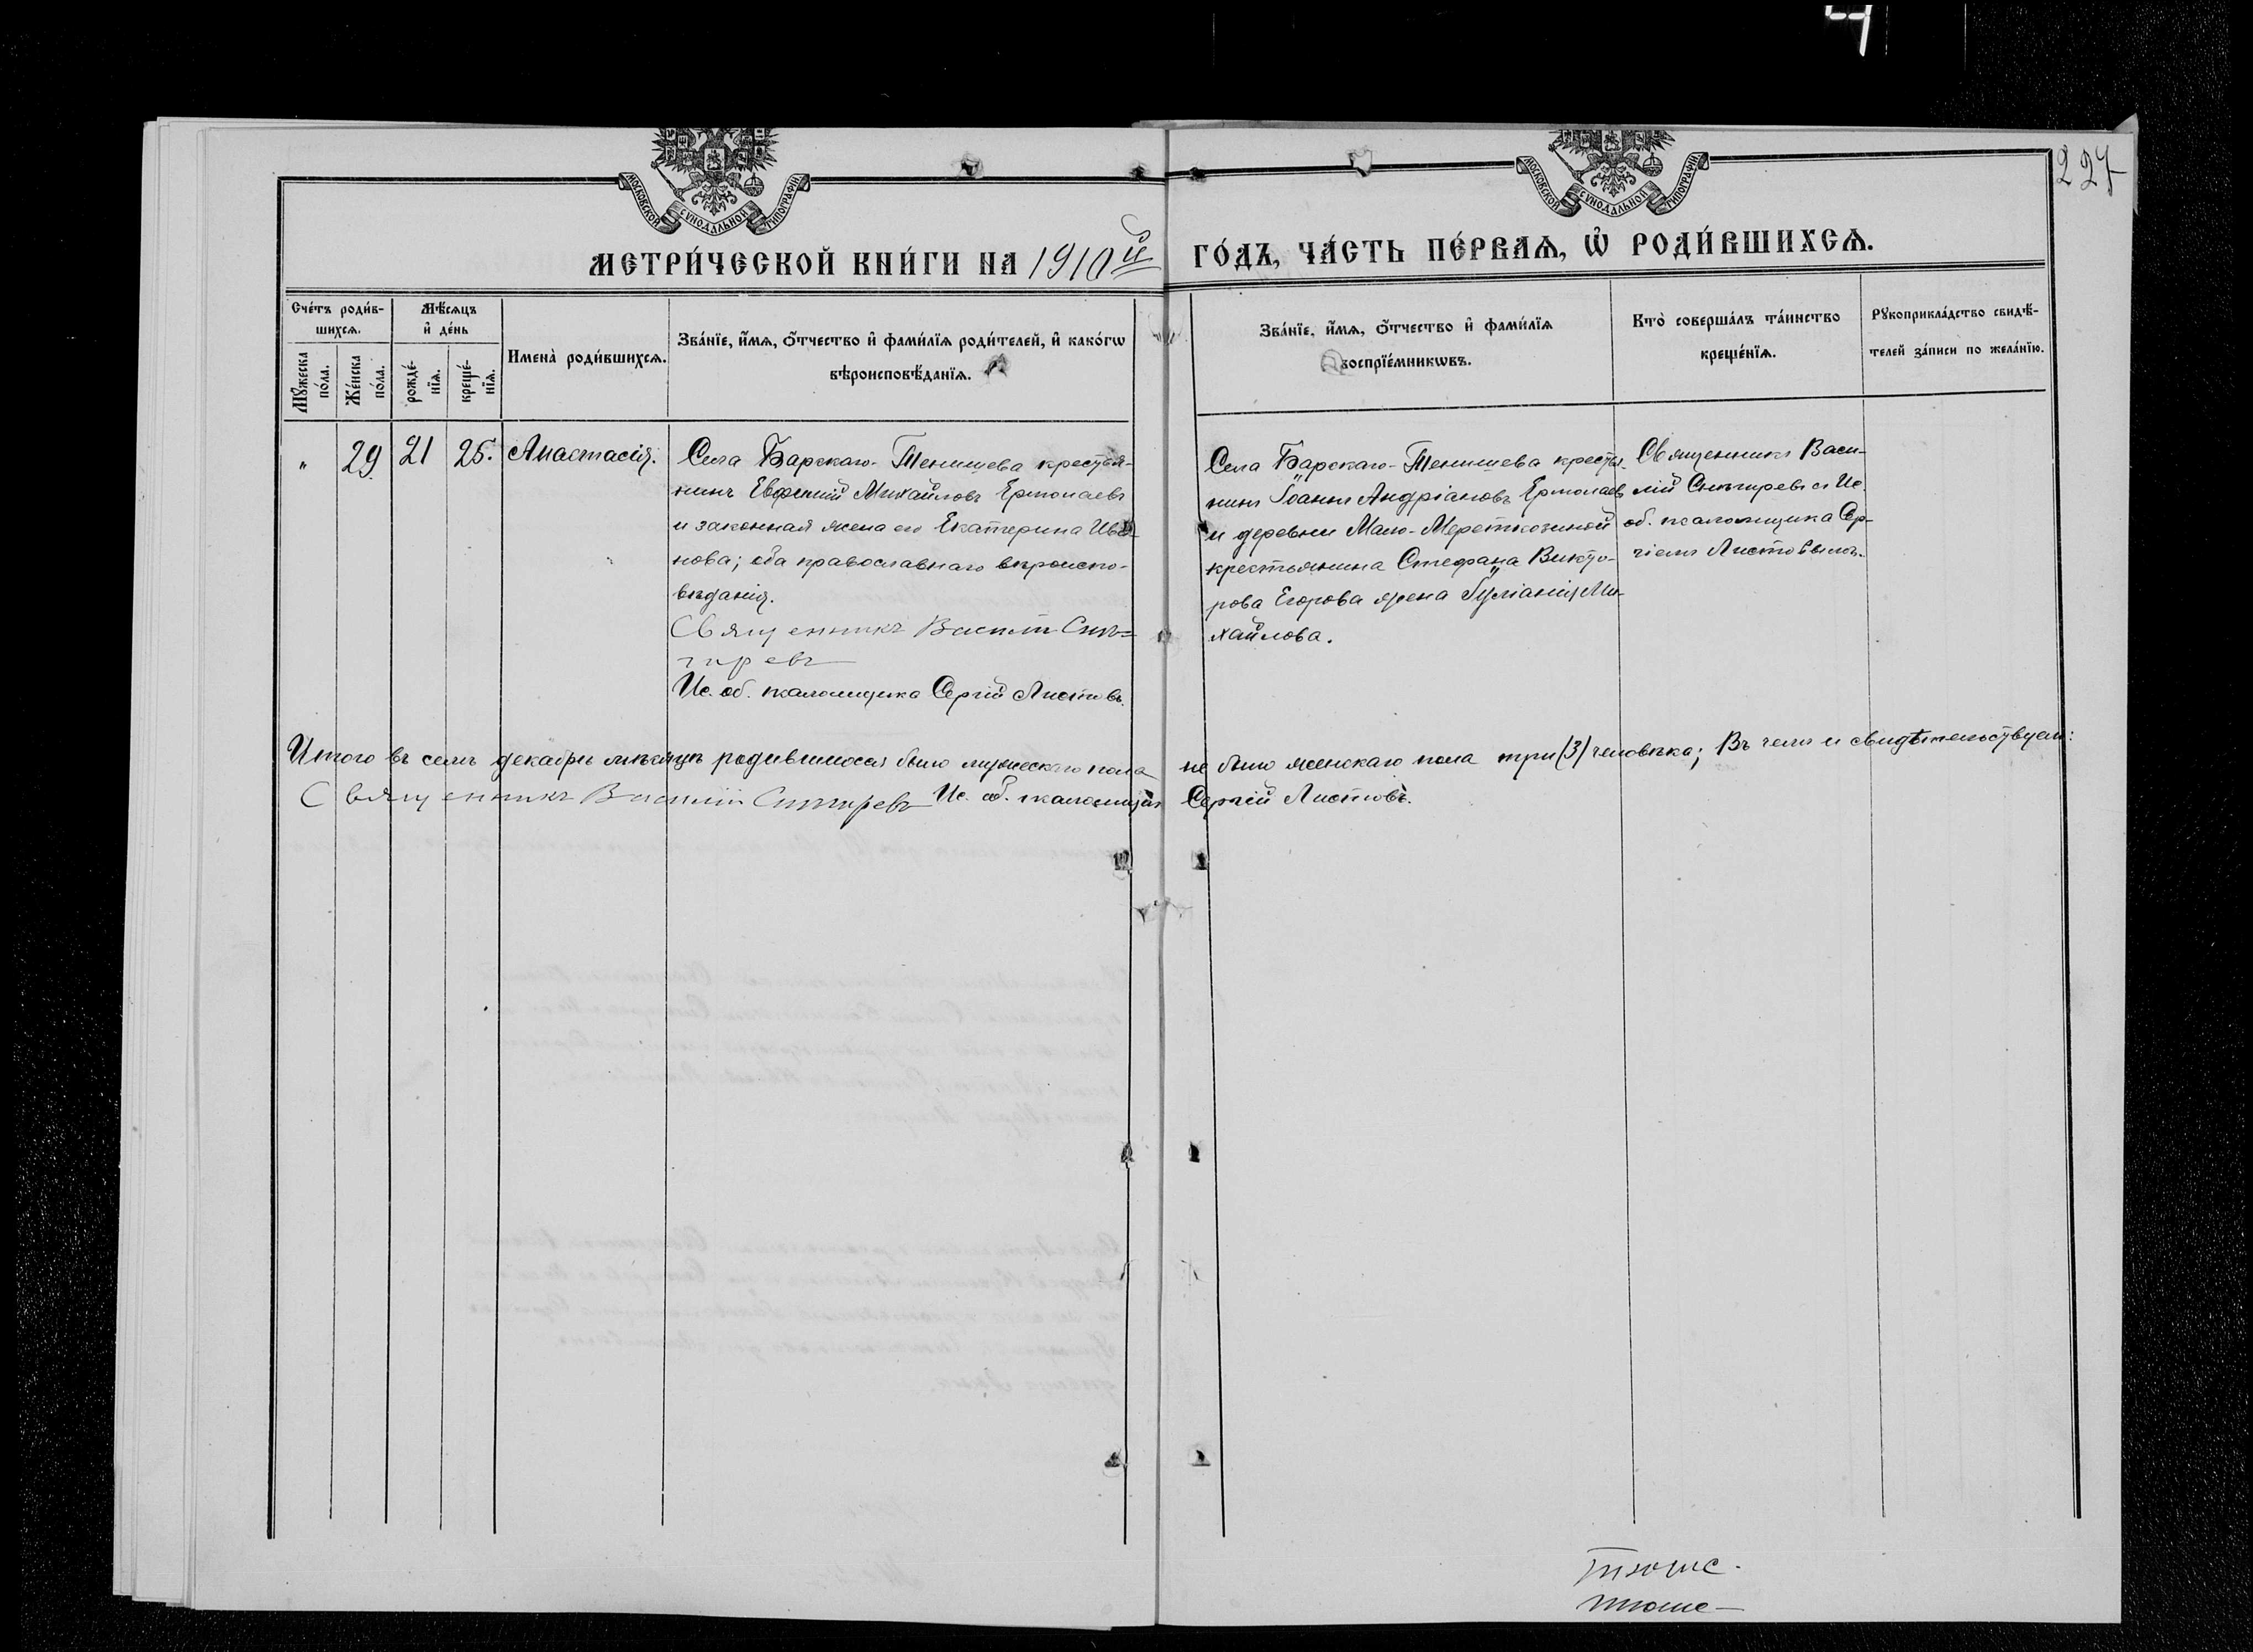 227
МОСКОВСКОЙ СУНОДАЛЬНОЙ ТИПОГРАФІИ
МОСКОВСКОЙ СУНОДАЛЬНОЙ ТИПОГРАФІИ
МЕТРИ́ЧЕСКОЙ КНИ́ГИ НА 1910й
ГО́ДЪ, ЧА́СТЬ ПЕ́РВАѦ, Ѡ҆ РОДИ́ВШИХСѦ.
Сче́тъ роди́в-
шихсѧ.
Мꙋ́жеска по́ла.
Же́нска по́ла.
Мѣ́сѧцъ
и҆ де́нь
рожде́-
нїѧ.
креще́-
нїѧ.
Имена̀ роди́вшихсѧ.
Зва́нїе, и҆́мѧ, ѻ҆́тчество и҆ фами́лїѧ роди́телей, и҆ како́гѡ
вѣроисповѣ́данїѧ.
Зва́нїе, и҆́мѧ, ѻ҆́тчество и҆ фами́лїѧ
воспрїе́мникѡвъ.
Кто̀ соверша́лъ та́инство
креще́нїѧ.
Рꙋкоприкла́дство свидѣ́-
телей за́писи по жела́нїю.
" 29 21 25. Анастасія.
Села Барскаго-Тенишева крестья-
нинъ Евфимій Михайловъ Ермолаевъ
и законная жена его Екатерина Ива-
нова; оба православнаго вѣроиспо-
вѣданія.
Священникъ Василій Снѣ-
гиревъ
Ис. об. псаломщика Сергій Листовъ.
Села Барскаго-Тенишева крестья-
нинъ Іоаннъ Андріановъ Ермолаевъ
и деревни Мало-Мереткозиной
крестьянина Стефана Викто-
рова Егорова жена Іуліанія Ми-
хайлова.
Священникъ Васи-
лій Снѣгиревъ съ Ис.
об. псаломщика Сер-
гіемъ Листовымъ.
Итого въ семъ декабрѣ мѣсяцѣ родившихся было мужескаго пола
не было женскаго пола три (3) человѣка; Въ чемъ и свидѣтельствуемъ:
Священникъ Василій Снѣгиревъ Ис. об. псаломщика
Сергій Листовъ.